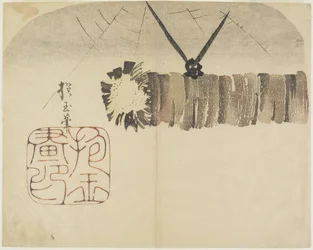 抱玉筆
抱玉
畫印